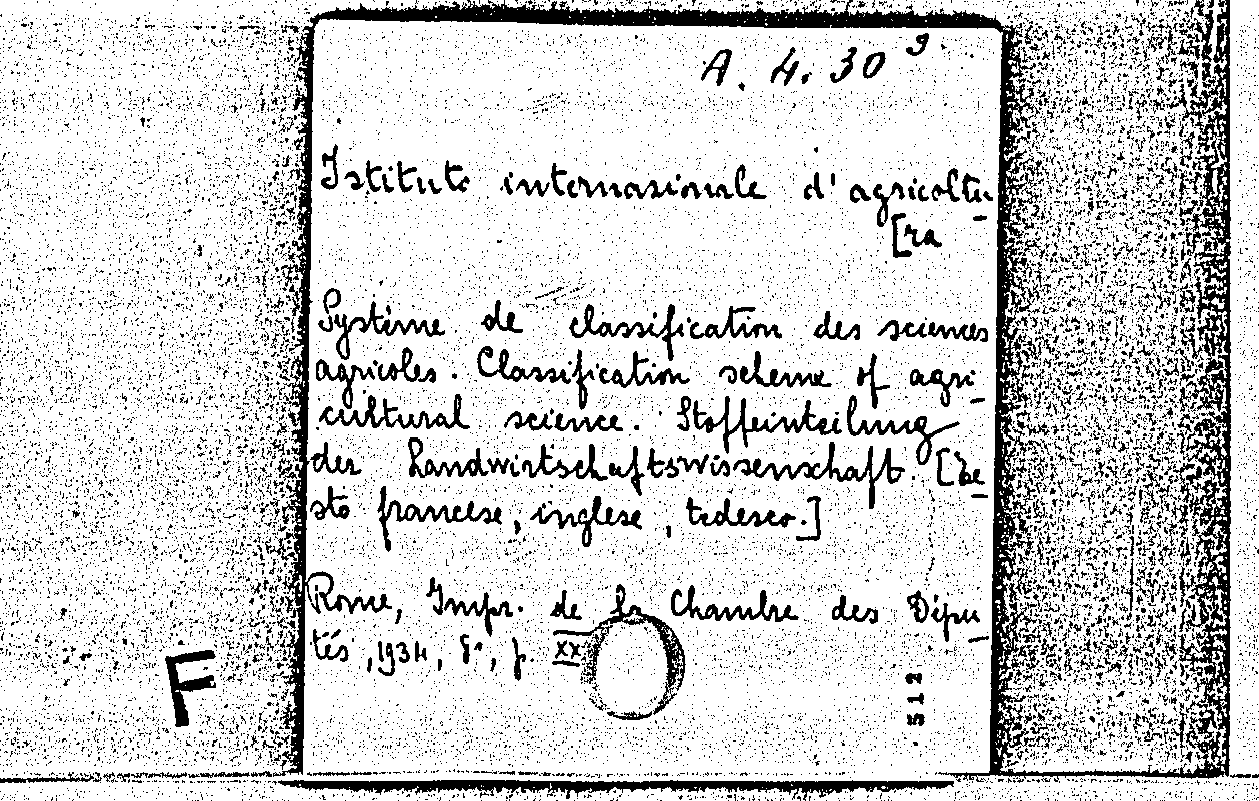 A. 4. 30 9
Istituto internazionale d'agricoltu-
[ra
Système de classification des sciences
agricoles. Classification scheme of agri-
cultural science. Stoffeinteilung
der Landwirtschaftswissenschaft. [Te-
sto francese, inglese, tedesco.]
Rome, Impr. de la Chambre des Dépu-
tés, 1934, 8°, p. XX
512
F